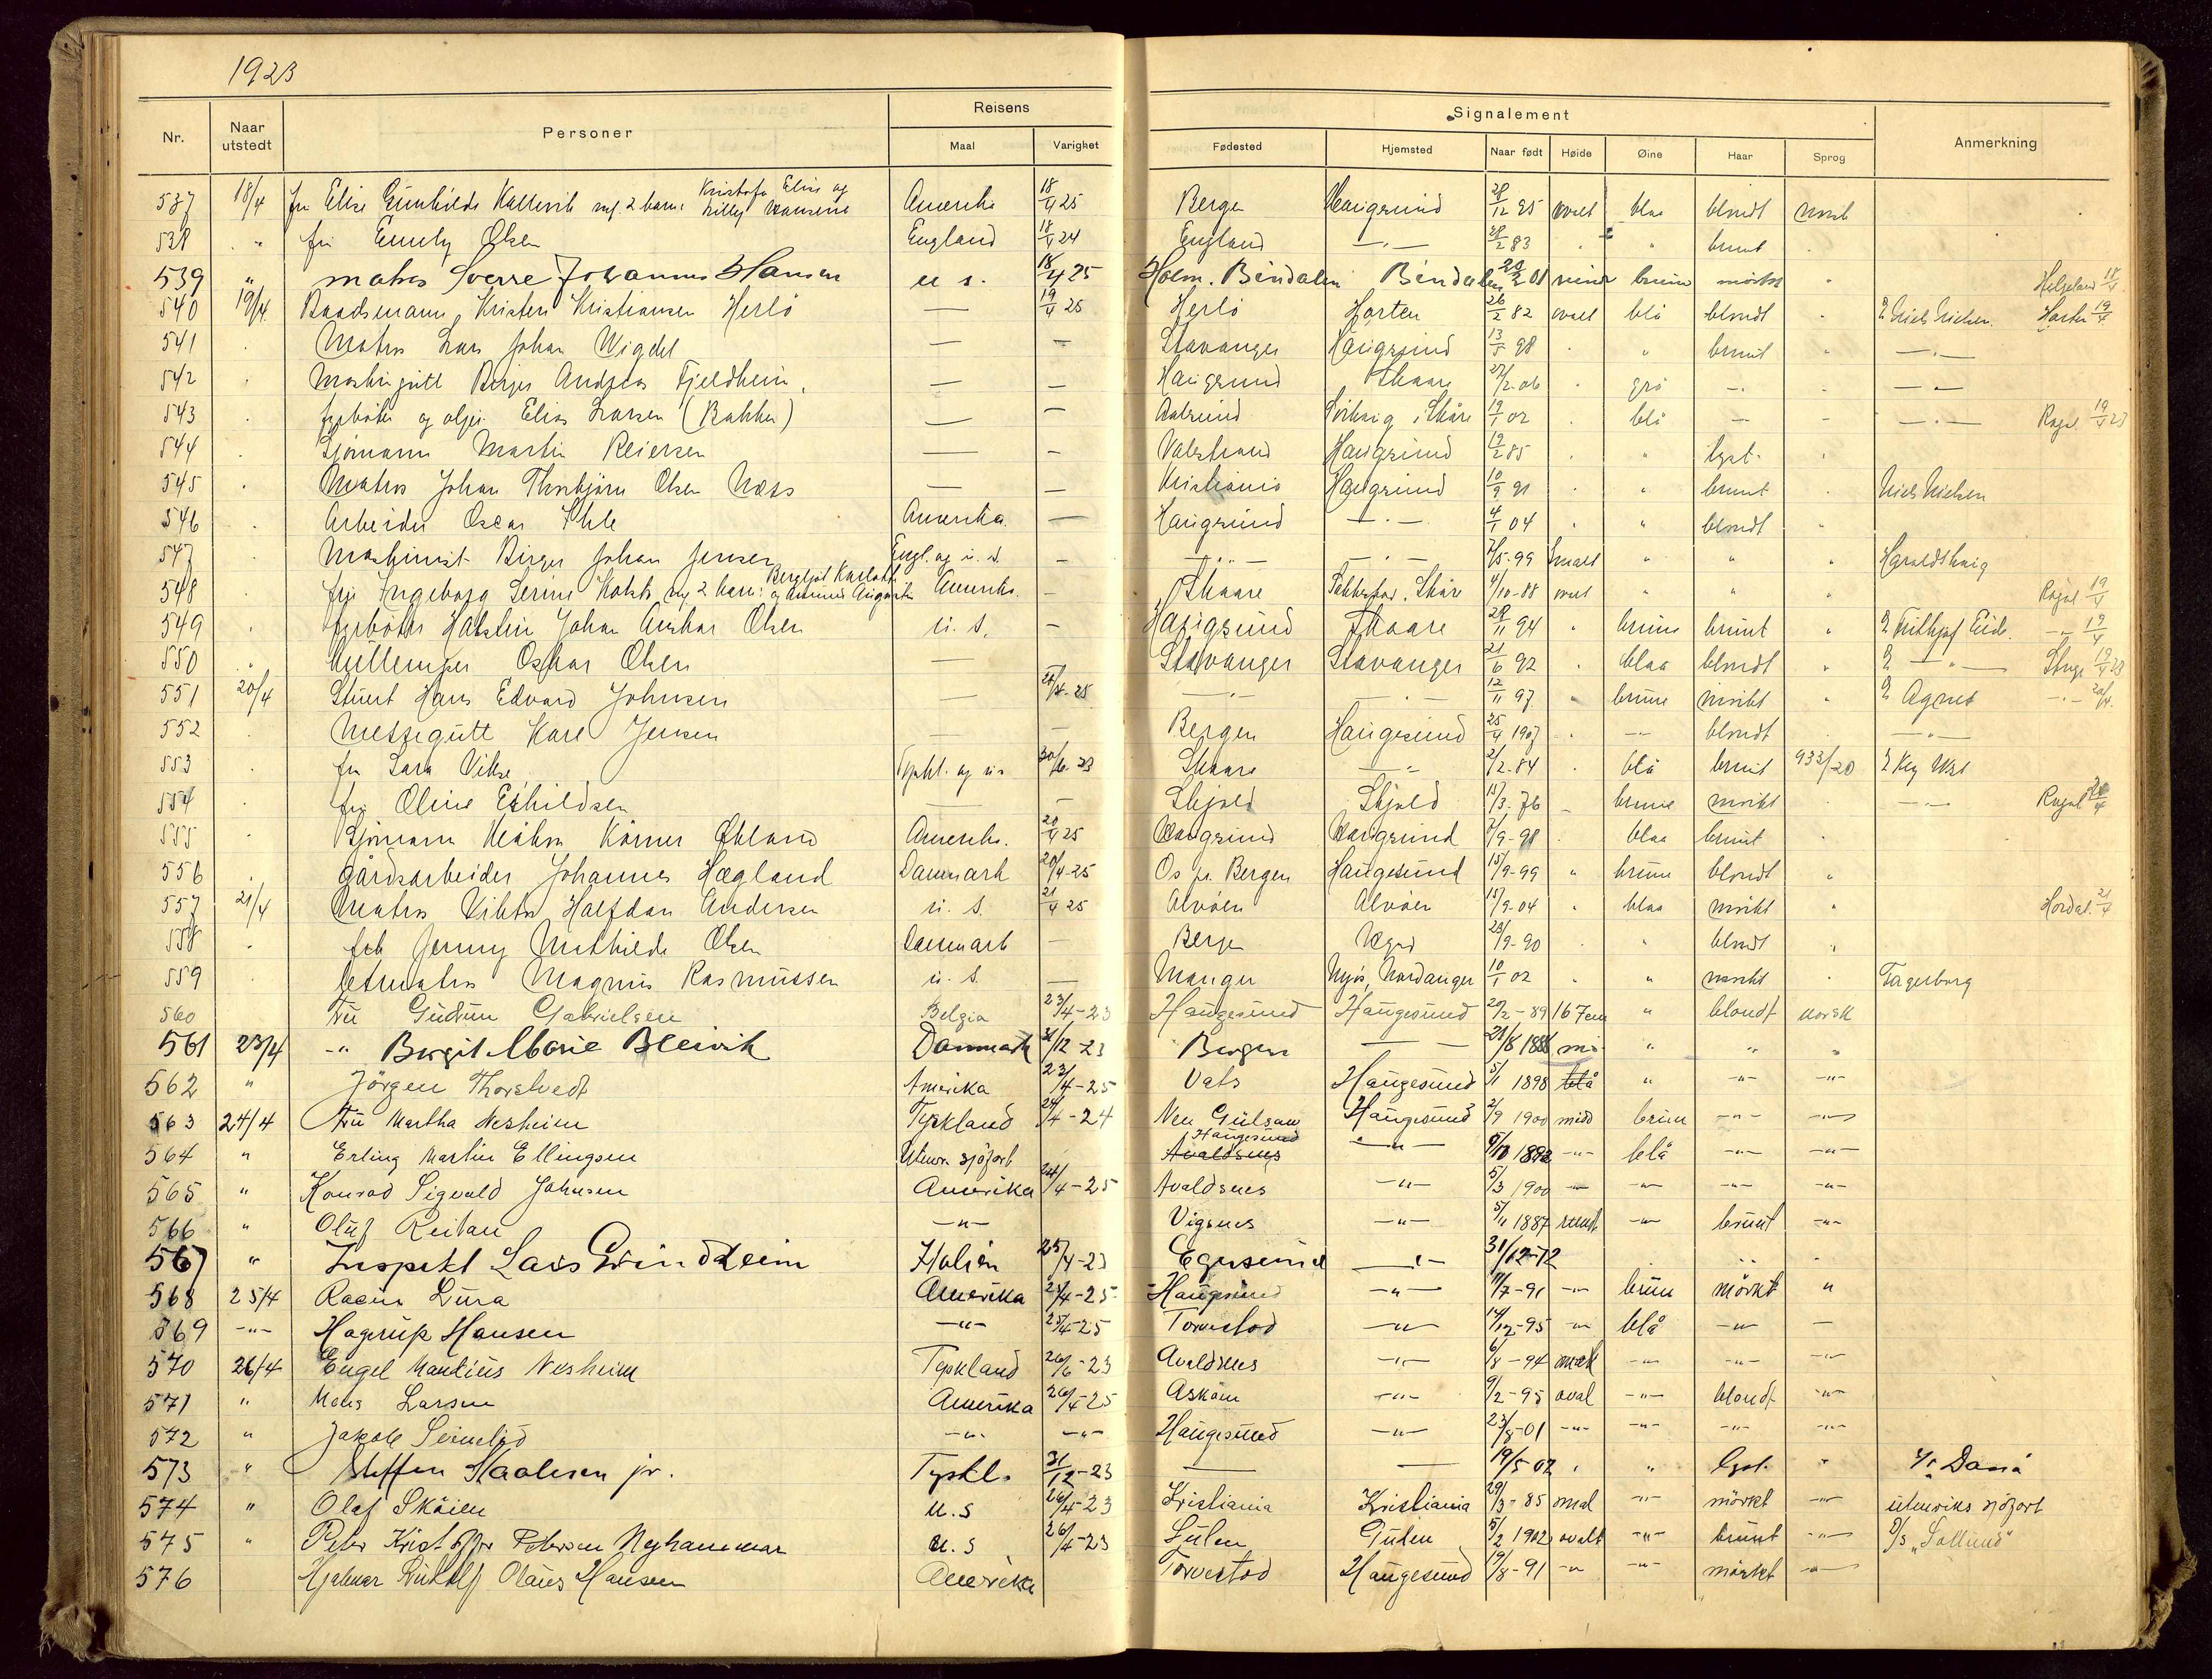 1923
Nr. Naar utstedt Personer Reisens Maal Varighet Signalement Fødested Hjemsted Naar født Høide Øine Haar Sprog Anmerkning
537 18/4 fru Elise Gunhilde Kallevik m/. 2 barn: Kristofa Elise og Lilly Amerika 18/4 25 Bergen Haugesund 28/12 95 ovalt blaa blondt norsk
538 " fru Emely Olsen England 18/4 24 England —"— 28/2 83 " " brunt
539 " matros Sverre Johannes Hansen u s. 18/4 25 Holm. Bindalen Bindalen 20/2 01 rund brune mörkt " Helgeland 18/4
540 19/4 Baadsmann Kristen Kristiansen Herlö — 19/4 25 Herlö Horten 26/2 82 ovalt blå blondt " Niels Nielsen. Horten 19/4
541 " Matros Lars Johan Wigdel — — Stavanger Haugesund 13/5 98 " " brunt " —"—
542 " Maskingutt Birger Andreas Fjeldheim — — Haugesund Skaare 27/2-06 " grå —"— " —"—
543 " fyrböter og oljer Elias Larsen (Bakken) — — Aalesund i Skåre 19/1 02 " blå — — —"— Rogal. 19/4 23
544 " Sjömann Martin Reiersen — — Valestrand Haugesund 19/2 85 " " lyst. "
545 " Matros Johan Thorbjörn Olsen Næss — — Kristiania Haugesund 10/9 91 " " brunt " Niels Nielsen
546 " Arbeider Oscar Ihle Amerika — Haugesund —"— 4/1 04 " " blondt "
547 " Maskinist Birger Johan Jensen Engl. og u. s. — —"— —"— 7/5-99 smalt " " " Haraldshaug
548 " fru Ingeborg Serine m/ 2 barn: Bergljot og Amerika. — Skaare Skåre 4/10-88 ovalt " " " Rogal 19/4
549 " fyrböter Halstein Johan Anskar Olsen u. s. — Haugesund Skaare 28/11 94 " brune brunt " Fridtjof Eide. —"— 19/4
550 " Oskar Olsen — Stavanger Stavanger 21/6 92 " blaa blondt " —"— 19/4 23
551 20/4 Stuert Hans Edvard Johnsen — 20/4-25 —"— —"— 12/11 97 " brune mörkt " Agnes —"— 20/4.
552 " Messegutt Kare Jensen — — Bergen Haugesund 25/4 1907 " —"— blondt —"—
553 " fru Sara Vikse Tyskl. og 20/6-23 Skaare —"— 2/2-84 " blå brunt 933/20
554 " fru Oline Eskildsen — — Skjold Skjold 15/3-76 — brune mörkt " —"— Rogal 20/4
555 " Sjömann Körner Økland Amerika. 20/4 25 Haugesund Haugesund 7/9-98 " blaa brunt "
556 " Gårdsarbeider Johannes Hægland Danmark 20/4-25 Os pr. Bergen Haugesund 15/9-99 " brune blondt "
557 21/4 Matros Viktor Halfdan Andersen u. s. 21/4 25 Alvöen Alvöen 15/9-04 " blaa mörkt " Hordal. 21/4
558 " frk Jenny Mathilde Olsen Danmark — Bergen 28/9-90 " " blondt "
559 " letmatros Magnus Rasmussen u. s. — Manger 10/1 02 " " mörkt " Fagerborg
560 Fru Gudrun Gabrielsen Belgia 23/4-23 Haugesund Haugesund 20/2-89 167 cm " blondt norsk
561 23/4 —"— Birgit Marie Bleivik Danmark 31/12-23 Bergen — — 21/8 1888 " " "
562 " Jörgen Thorstvedt Amerika 23/4-25 Vats Haugesund 5/1 1898 blå " —"— —"—
563 24/4 Fru Martha Nesheim Tyskland 24/4-24 Haugesund 2/9 1900 midd brun —"— —"—
564 " Erling Martin Ellingsen Utenr. sjöfart Haugesund Avaldsnes —"— 5/10 1892 —"— blå —"— —"—
565 " Konrad Sigvald Johnsen Amerika 24/4-25 Avaldsnes —"— 5/3 1900 —"— —"— —"— —"—
566 " Oluf Reitan —"— Vigsnes —"— 5/11 1887 rundt —"— brunt —"—
567 " Inspekt Lars Grindheim Italien 25/4-23 Egersund —"— 31/12-72
568 25/4 Lura Amerika 24/4-25 Haugesund —"— 11/7-91 —"— brun mörkt "
569 —"— Hagerup Hansen —"— 25/4-25 Torvestad —"— 14/12-95 —"— blå —"— —
570 26/4 Engel Mantius Nesheim Tyskland 26/6-23 Avaldsnes —"— 6/8-94 smalt —"— —"— —"—
571 " Larsen Amerika 26/4-25 Asköen —"— 9/2-95 oval —"— blondt —"—
572 " Jakob —"— —"— Haugesund —"— 23/8-01 —"— —"— —"— —"—
573 " Steffen Staalesen jr. Tyskl. 31/12-23 — — 19/5-02 " " lyst. "
574 " Olaf Skåien u.s 26/4-23 Kristiania Kristiania 29/3-85 smal —"— mörkt —"— utenriks sjöfart
575 " Peter Kristoffer Petersen Nyhammar u.s 26/4-23 Gulen Gulen 5/2 1902 ovalt —"— brunt —"— S/S „Sollund"
576 Hjalmar Rudolf Olaus Hansen Amerika Torvestad Haugesund 19/8-91 —"— —"— mörkt —"—